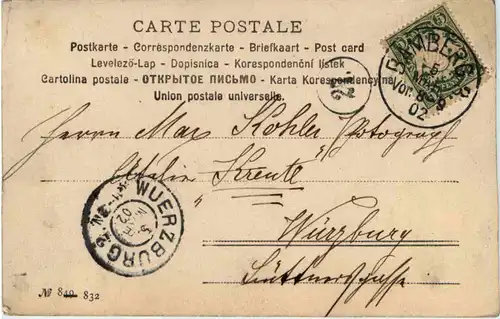 CARTE POSTALE
Postkarte - Correspondenzkarte - Briefkaart - Post card
Levelező-Lap - Dopisnica - Korespondenční lístek
Cartolina postale - ОТКРЫТОЕ ПИСЬМО - Karta Korespondencyjna
Union postale universelle.
BAMBERG
5
Vor. 8-9
02
Herrn Max Kohler, Photograph
Atelier Kreute
Würzburg
WUERZBURG 2.
02
№ 849 832